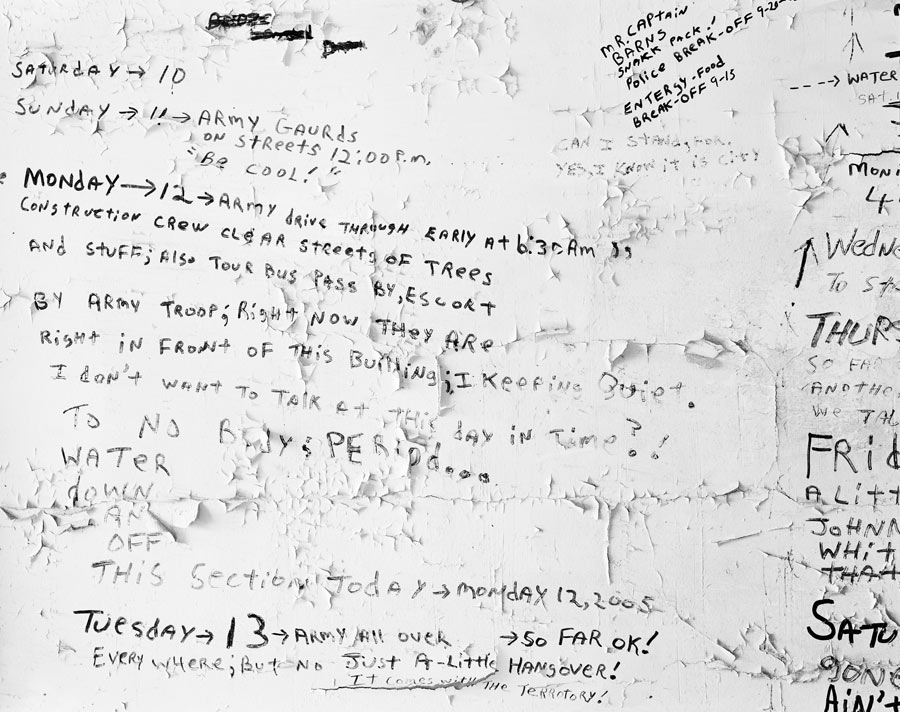 SATURDAY → 10
SUNDAY → 11 → ARMY GAURDS
ON STREETS 12:00 P.M.
"BE COOL!"
MONDAY → 12 → ARMY DRIVE THROUGH EARLY AT 6:30 AM
CONSTRUCTION CREW CLEAR STREETS OF TREES
AND STUFF; ALSO TOUR BUS PASS BY, ESCORT
BY ARMY TROOP; RIGHT NOW THEY ARE
RIGHT IN FRONT OF THIS BUILDING; I KEEPING QUIET.
I DON'T WANT TO TALK AT THIS DAY IN TIME?!
TO NO BODY; PERIOD...
WATER
DOWN
AN
OFF
THIS SECTION TODAY → MONDAY 12, 2005
TUESDAY → 13 → ARMY ALL OVER → SO FAR OK!
EVERY WHERE; BUT NO JUST A-LITTLE HANGOVER!
IT COMES WITH THE TERRITORY!
MR. CAPTAIN
BARNS
SNAKK PACK!
POLICE BREAK-OFF 9-20
ENTERGY-FOOD
BREAK-OFF 9-15
CAN I STAND, FOR,
YES, I KNOW IT IS CITY
---→ WATER
SAT
MON
4
↑ WEDNE
TO ST
THURS
SO FAR
ANOTHE
WE TAL
FRID
A LITT
JOHNN
WHIT
THAT
SATU
GONE
AIN'T